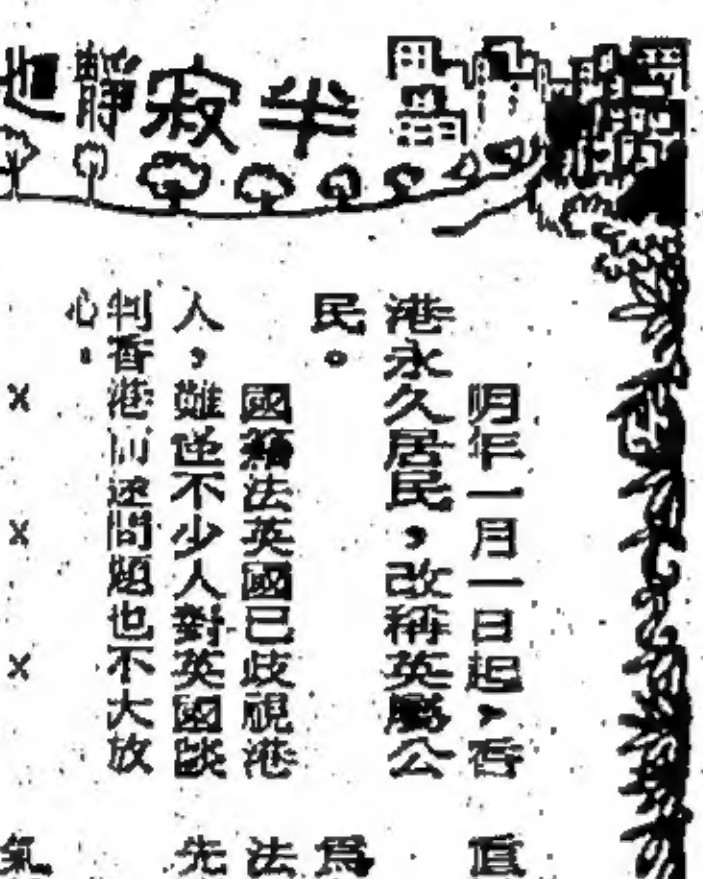 半寂靜地
明年一月一日起，香
港永久居民，改稱英屬公
民。
國籍法英國已歧視港
人，難怪不少人對英國談
判香港前途問題也不大放
心。
× × ×
直
為
法
先
氣